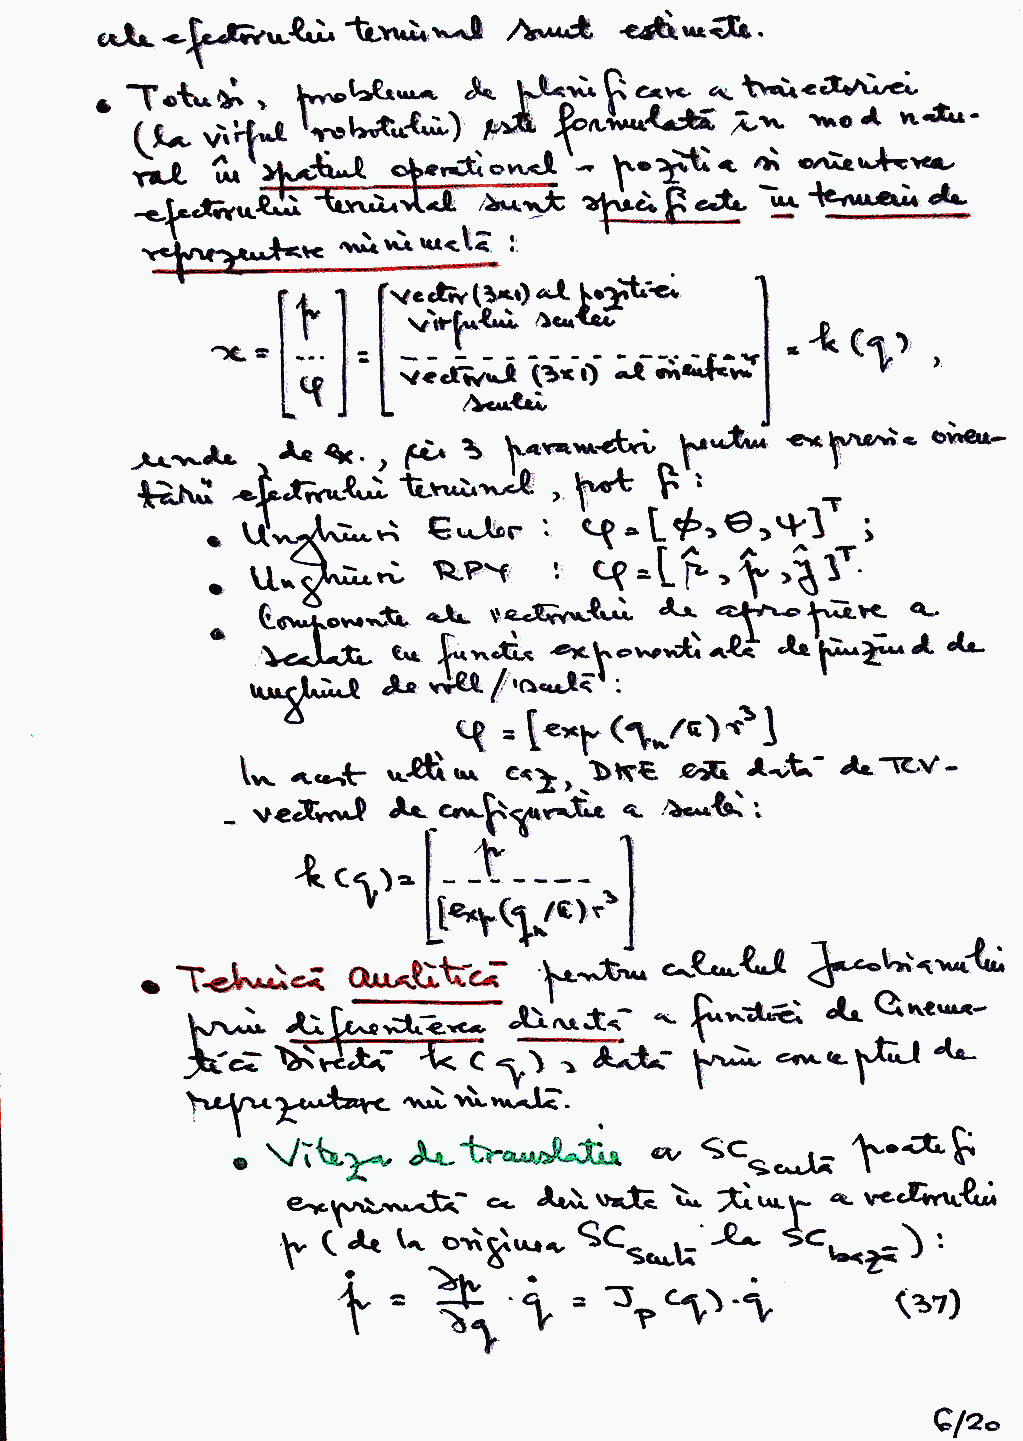 ale efectorului terminal sunt estimate.
• Totusi, problema de planificare a traiectoriei
(la vîrful robotului) este formulată în mod natu-
ral în spatiul operational - pozitia si orientarea
efectorului terminal sunt specificate în termeni de
reprezentare minimală :
x = [p ... φ] = [vector (3x1) al pozitiei
vîrfului sculei
vectorul (3x1) al orientării
sculei] = k (q) ,
unde, de ex., cei 3 parametri pentru expresia orien-
tării efectorului terminal, pot fi :
• Unghiuri Euler : φ = [ϕ, θ, ψ]ᵀ ;
• Unghiuri RPY : φ = [r̂, p̂, ŷ]ᵀ.
• Componente ale vectorului de apropiere a
scalate cu functia exponentială depinzînd de
unghiul de roll / sculă :
φ = [exp (qₙ/π) r³]
In acest ultim caz, DKE este dată de TCV-
- vectorul de configuratie a sculei :
k(q) = [p
[exp(qₙ/π) r³]
• Tehnică analitică pentru calculul Jacobianului
prin diferentierea directă a functiei de Cinema-
tică Directă k(q), dată prin conceptul de
reprezentare minimală.
• Viteza de translatie a SC sculă poate fi
exprimată ca derivata în timp a vectorului
p (de la originea SC sculă la SC bază) :
ṗ = ∂p/∂q · q̇ = Jₚ(q) · q̇ (37)
6/20